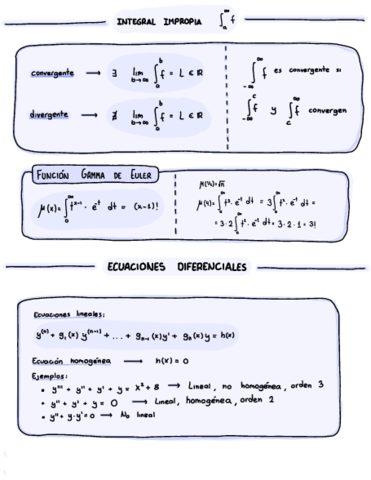 INTEGRAL IMPROPIA ∫ₐ^∞ f
convergente → ∃ lim b→∞ ∫ₐ^b f = L ∈ ℝ
divergente → ∄ lim b→∞ ∫ₐ^b f = L ∈ ℝ
∫_{-∞}^{∞} f es convergente si
∫_{-∞}^{c} f y ∫_c^∞ f convergen
FUNCIÓN GAMMA DE EULER
μ(x) = ∫₀^∞ t^{x-1} · e^{-t} dt = (x-1)!
μ(½) = √π
μ(4) = ∫₀^∞ t³ · e^{-t} dt = 3 ∫₀^∞ t² · e^{-t} dt =
= 3 · 2 ∫₀^∞ t · e^{-t} dt = 3 · 2 · 1 = 3!
ECUACIONES DIFERENCIALES
Ecuaciones lineales:
y^{(n)} + g₁(x) y^{(n-1)} + ... + g_{n-1}(x) y' + g_n(x) y = h(x)
Ecuación homogénea → h(x) = 0
Ejemplos:
• y''' + y'' + y' + y = x² + 8 → Lineal, no homogénea, orden 3
• y'' + y' + y = 0 → Lineal, homogénea, orden 2
• y'' + y · y' = 0 → No lineal